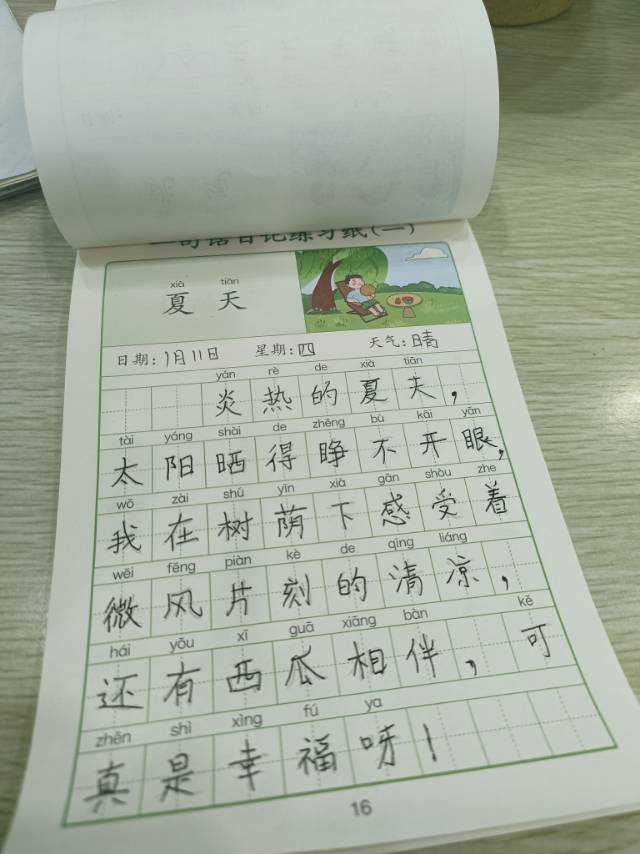 一句话日记练习纸(一)
xià tiān
夏 天
日期:1月11日 星期:四 天气:晴
yán rè de xià tiān
炎热的夏天,
tài yáng shài de zhēng bù kāi yǎn
太阳晒得睁不开眼,
wǒ zài shù yīn xià gǎn shòu zhe
我在树荫下感受着
wēi fēng piàn kè de qīng liáng
微风片刻的清凉,
hái yǒu xī guā xiāng bàn kě
还有西瓜相伴,可
zhēn shì xìng fú ya
真是幸福呀!
16